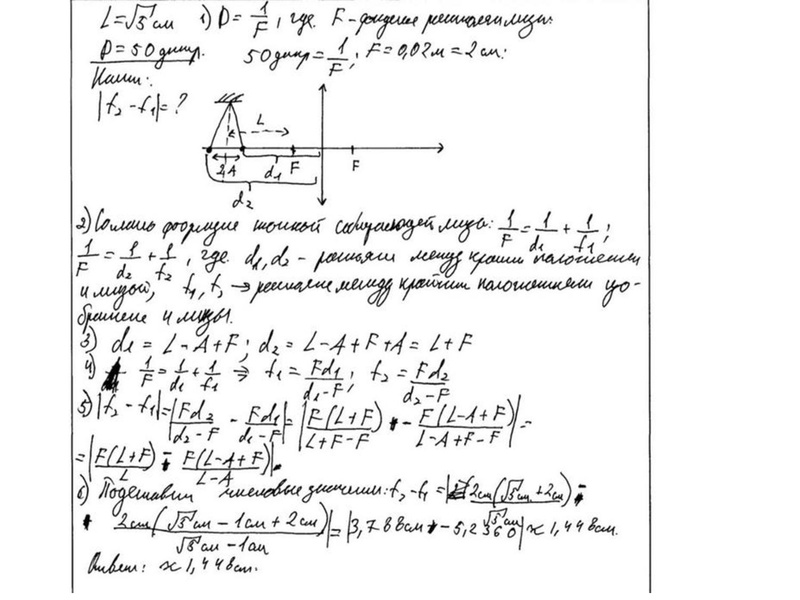 L = √5 см 1) D = 1/F, где F - фокусное расстояние линзы.
D = 50 дптр. 50 дптр = 1/F; F = 0,02 м = 2 см.
Найти:
|f₂ - f₁| = ?
L
2A d₁ F F
d₂
2) Согласно формуле тонкой собирающей линзы: 1/F = 1/d₁ + 1/f₁;
1/F = 1/d₂ + 1/f₂, где d₁, d₂ - расстояние между крайним положением
и линзой, f₁, f₂ → расстояние между крайним положением изо-
бражения и линзы.
3) d₁ = L - A + F; d₂ = L - A + F + A = L + F
4) 1/F = 1/d₁ + 1/f₁ ⇒ f₁ = Fd₁/(d₁ - F); f₂ = Fd₂/(d₂ - F)
5) |f₂ - f₁| = |Fd₂/(d₂ - F) - Fd₁/(d₁ - F)| = |F(L + F)/(L + F - F) - F(L - A + F)/(L - A + F - F)| =
= |F(L + F)/L - F(L - A + F)/(L - A)|.
6) Подставим числовые значения: f₂ - f₁ = |2 см(√5 см + 2 см)/√5 см -
- 2 см(√5 см - 1 см + 2 см)/(√5 см - 1 см)| = |3,788 см - 5,2360| ≈ 1,448 см.
Ответ: ≈ 1,448 см.